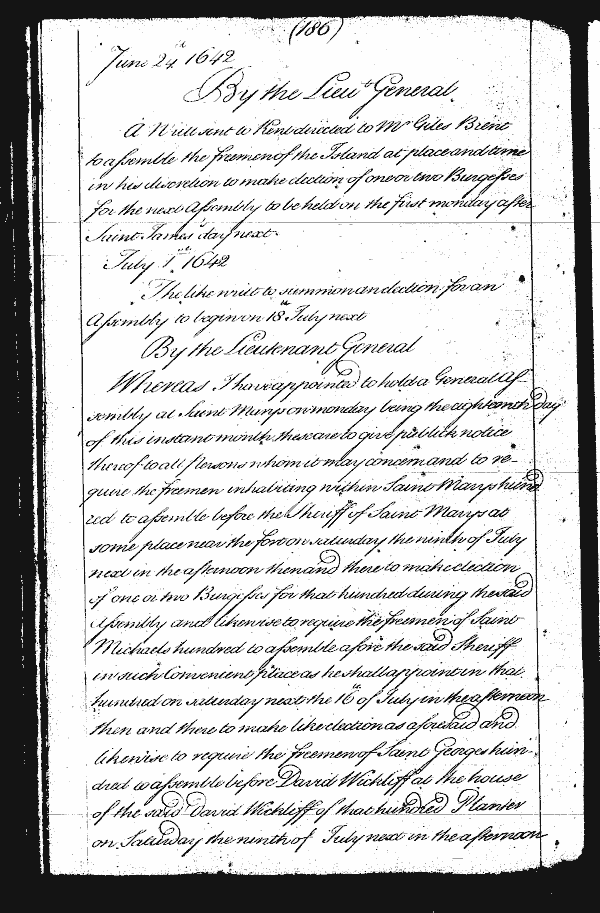 (186)
June 24th 1642
By the Lieut General
A Writt sent to Kent directed to Mr Giles Brent
to assemble the freemen of the Island at place and time
in his discretion to make election of one or two Burgesses
for the next Assembly to be held on the first monday after
Saint James' day next
July 1st 1642
The like writt to summon an election for an
Assembly to begin on 18th July next
By the Lieutenant General
Whereas I have appointed to hold a General As-
sembly at Saint Marys on monday being the eighteenth day
of this instant month these are to give publick notice
thereof to all Persons whom it may concern and to re-
quire the freemen inhabiting within Saint Marys hund
red to assemble before the Sheriff of Saint Marys at
some place near the fort on saturday the ninth of July
next in the afternoon then and there to make election
of one or two Burgesses for that hundred during the said
Assembly and likewise to require the freemen of Saint
Michaels hundred to assemble afore the said Sheriff
in such Convenient place as he shall appoint in that
hundred on saturday next the 16th of July in the afternoon
then and there to make like election as aforesaid and
likewise to require the freemen of Saint Georges hun-
dred to assemble before David Wickliff at the house
of the said David Wickliff of that hundred Planter
on Saturday the ninth of July next in the afternoon